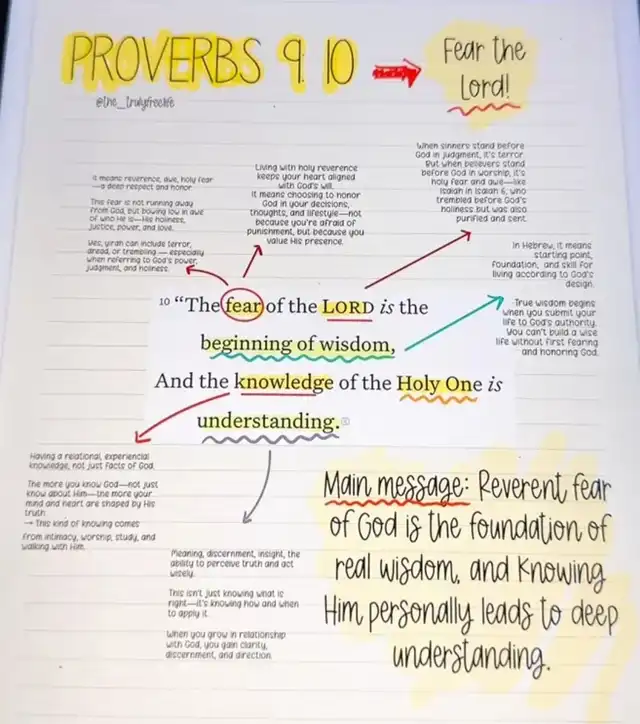 PROVERBS 9:10
Fear the
Lord!
@the_trulyfreelife
It means reverence, awe, holy fear
—a deep respect and honor
This fear is not running away
from God, but bowing low in awe
of who He is—His holiness,
justice, power, and love.
Yes, yirah can include terror,
dread, or trembling — especially
when referring to God's power,
judgment, and holiness.
Living with holy reverence
keeps your heart aligned
with God's will.
It means choosing to honor
God in your decisions,
thoughts, and lifestyle—not
because you're afraid of
punishment, but because you
value His presence.
When sinners stand before
God in judgment, it's terror.
But when believers stand
before God in worship, it's
holy fear and awe—like
Isaiah in Isaiah 6, who
trembled before God's
holiness but was also
purified and sent.
In Hebrew, it means
starting point,
foundation, and skill for
living according to God's
design.
True wisdom begins
when you submit your
life to God's authority.
You can't build a wise
life without first fearing
and honoring God.
10 “The fear of the LORD is the
beginning of wisdom,
And the knowledge of the Holy One is
understanding.
Having a relational, experiencial
knowledge, not just facts of God.
The more you know God—not just
know about Him—the more your
mind and heart are shaped by His
truth.
→ This kind of knowing comes
from intimacy, worship, study, and
walking with Him.
Meaning, discernment, insight, the
ability to perceive truth and act
wisely.
This isn't just knowing what is
right—it's knowing how and when
to apply it.
When you grow in relationship
with God, you gain clarity,
discernment, and direction.
Main message: Reverent fear
of God is the foundation of
real wisdom, and knowing
Him personally leads to deep
understanding.